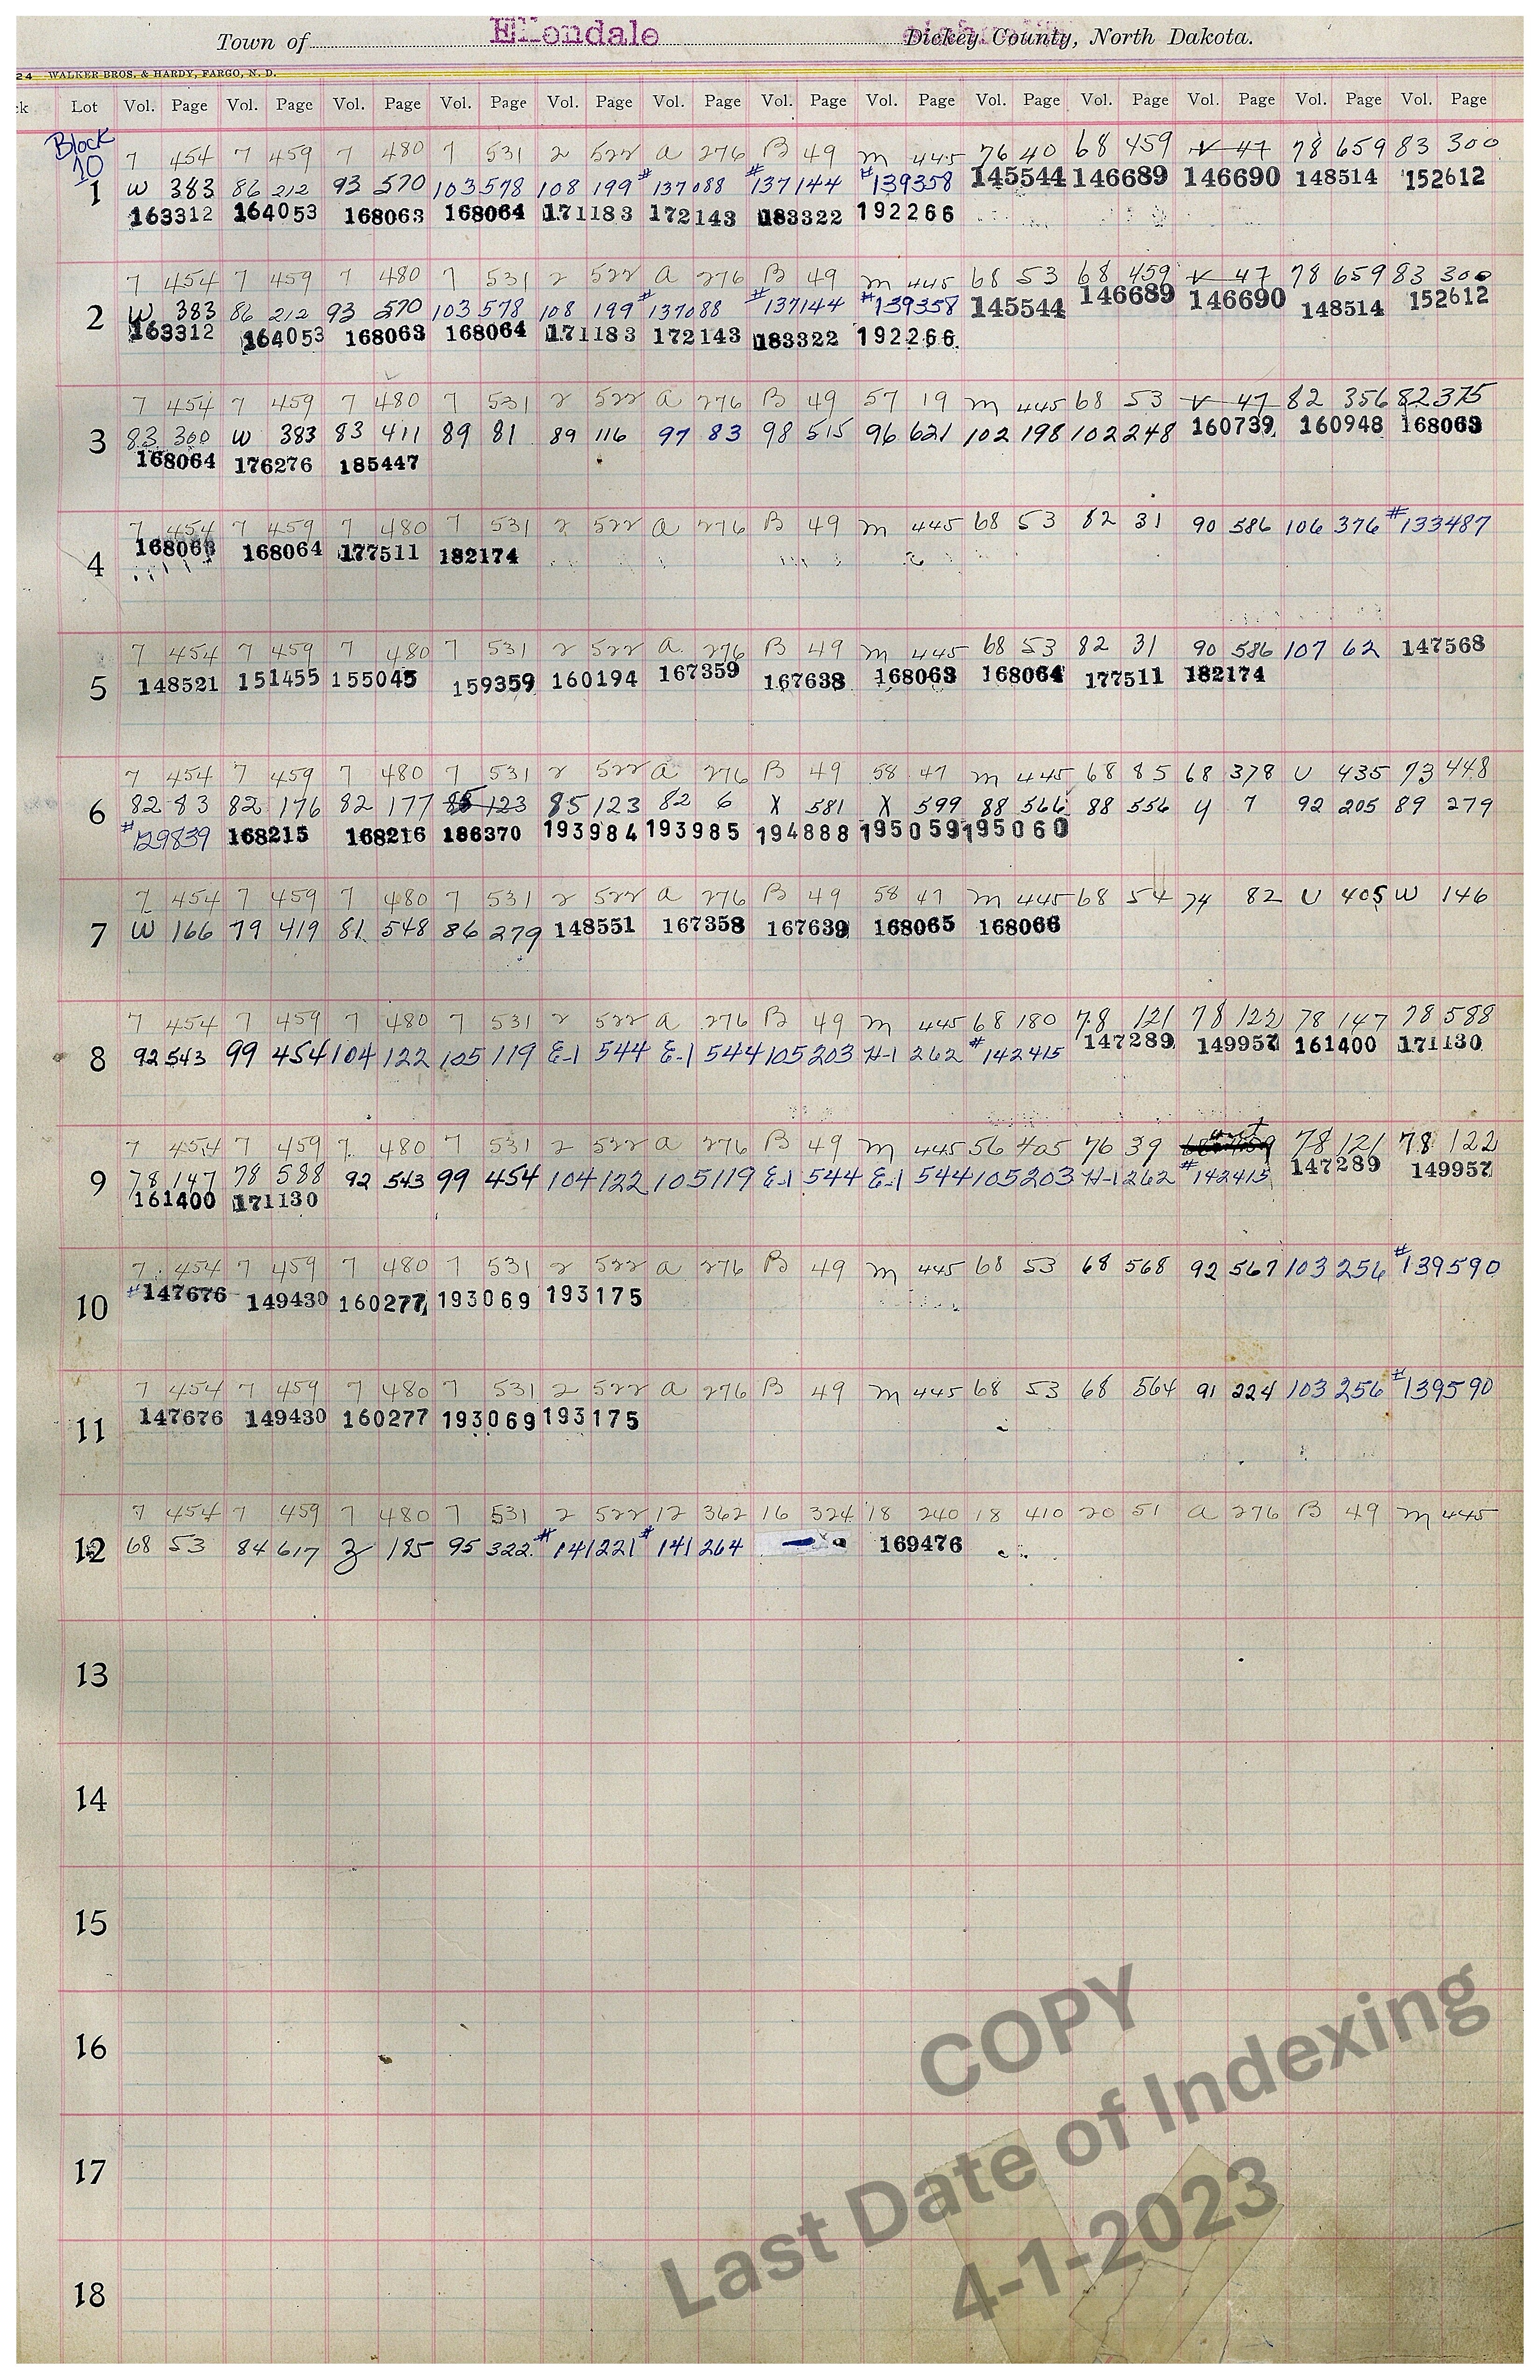 Town of Ellendale Dickey County, North Dakota.
24 WALKER BROS. & HARDY, FARGO, N. D.
ck Lot Vol. Page Vol. Page Vol. Page Vol. Page Vol. Page Vol. Page Vol. Page Vol. Page Vol. Page Vol. Page Vol. Page Vol. Page Vol. Page
Block
10
7 454 7 459 7 480 7 531 2 522 a 276 B 49 m 445 76 40 68 459 V 47 78 659 83 300
1 W 383 86 212 93 570 103 578 108 199 #137088 #137144 #139358 145544 146689 146690 148514 152612
163312 164053 168063 168064 171183 172143 183322 192266
7 454 7 459 7 480 7 531 2 522 a 276 B 49 m 445 68 53 68 459 V 47 78 659 83 300
2 W 383 86 212 93 570 103 578 108 199 #137088 #137144 #139358 145544 146689 146690 148514 152612
163312 164053 168063 168064 171183 172143 183322 192266
7 454 7 459 7 480 7 531 2 522 a 276 B 49 57 19 m 445 68 53 V 47 82 356 82 375
3 83 300 W 383 83 411 89 81 89 116 97 83 98 515 96 621 102 198 102 248 160739 160948 168063
168064 176276 185447
7 454 7 459 7 480 7 531 2 522 a 276 B 49 m 445 68 53 82 31 90 586 106 376 #133487
4 168063 168064 177511 182174
7 454 7 459 7 480 7 531 2 522 a 276 B 49 m 445 68 53 82 31 90 586 107 62 147568
5 148521 151455 155045 159359 160194 167359 167638 168063 168064 177511 182174
7 454 7 459 7 480 7 531 2 522 a 276 B 49 58 47 m 445 68 85 68 378 U 435 73 448
6 82 83 82 176 82 177 85 123 85 123 82 6 X 581 X 599 88 566 88 556 y 7 92 205 89 279
#129839 168215 168216 186370 193984 193985 194888 195059 195060
7 454 7 459 7 480 7 531 2 522 a 276 B 49 58 47 m 445 68 54 74 82 U 405 W 146
7 W 166 79 419 81 548 86 279 148551 167358 167639 168065 168066
7 454 7 459 7 480 7 531 2 522 a 276 B 49 m 445 68 180 78 121 78 122 78 147 78 588
8 92 543 99 454 104 122 105 119 E-1 544 E-1 544 105 203 H-1 262 #142415 147289 149957 161400 171130
7 454 7 459 7 480 7 531 2 522 a 276 B 49 m 445 56 405 76 39 78 121 78 122
9 78 147 78 588 92 543 99 454 104 122 105 119 E-1 544 E-1 544 105 203 H-1 262 #142415 147289 149957
161400 171130
7 454 7 459 7 480 7 531 2 522 a 276 B 49 m 445 68 53 68 568 92 567 103 256 #139590
10 #147676 149430 160277 193069 193175
7 454 7 459 7 480 7 531 2 522 a 276 B 49 m 445 68 53 68 564 91 224 103 256 #139590
11 147676 149430 160277 193069 193175
7 454 7 459 7 480 7 531 2 522 12 362 16 324 18 240 18 410 20 51 a 276 B 49 m 445
12 68 53 84 617 Z 185 95 322 #141221 #141264 169476
13
14
15
16
17
18
COPY
Last Date of Indexing
4-1-2023